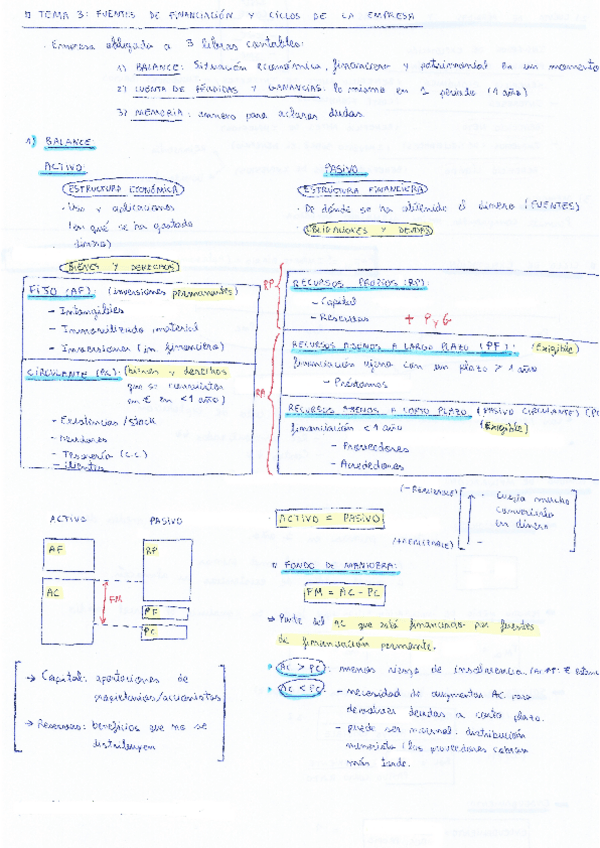 TEMA 3: FUENTES DE FINANCIACIÓN Y CICLOS DE LA EMPRESA
· Empresa obligada a 3 libros contables:
1) BALANCE: Situación económica, financiera y patrimonial en un momento
2) CUENTA DE PÉRDIDAS Y GANANCIAS: lo mismo en 1 periodo (1 año)
3) MEMORIA: para aclarar dudas
1) BALANCE
ACTIVO:
ESTRUCTURA ECONÓMICA
· Uso y aplicaciones
(en qué se ha gastado
dinero)
BIENES Y DERECHOS
PASIVO
ESTRUCTURA FINANCIERA
· De dónde se ha obtenido el dinero (FUENTES)
OBLIGACIONES Y DEUDAS
FIJO (AF): (inversiones permanentes)
- Intangibles
- Inmovilizado material
- Inversiones (in financiera)
CIRCULANTE (AC): (bienes y derechos
que se convierten
en € en <1 año)
- Existencias/stock
- Deudores
- Tesorería (C.C.)
- Clientes
RP
RECURSOS PROPIOS (RP):
- Capital
- Reservas + P y G
RA
RECURSOS AJENOS A LARGO PLAZO (PF): (Exigible)
financiación ajena con un plazo > 1 año
- Préstamos
RECURSOS AJENOS A CORTO PLAZO (PASIVO CIRCULANTE) (PC
financiación < 1 año (Exigible)
- Proveedores
- Acreedores
ACTIVO PASIVO
AF RP
AC FM
PF
PC
ACTIVO = PASIVO
· Cuesta mucho
convertirlo
en dinero
FONDO DE MANIOBRA:
FM = AC - PC
Parte del AC que está financiado por fuentes
de financiación permanente.
AC > PC: menos riesgo de insolvencia
AC < PC: - necesidad de aumentar AC para
devolver deudas a corto plazo.
- puede ser normal. distribución
minorista (los proveedores cobran
más tarde.
→ Capital: aportaciones de
propietarios/accionistas
→ Reservas: beneficios que no se
distribuyen